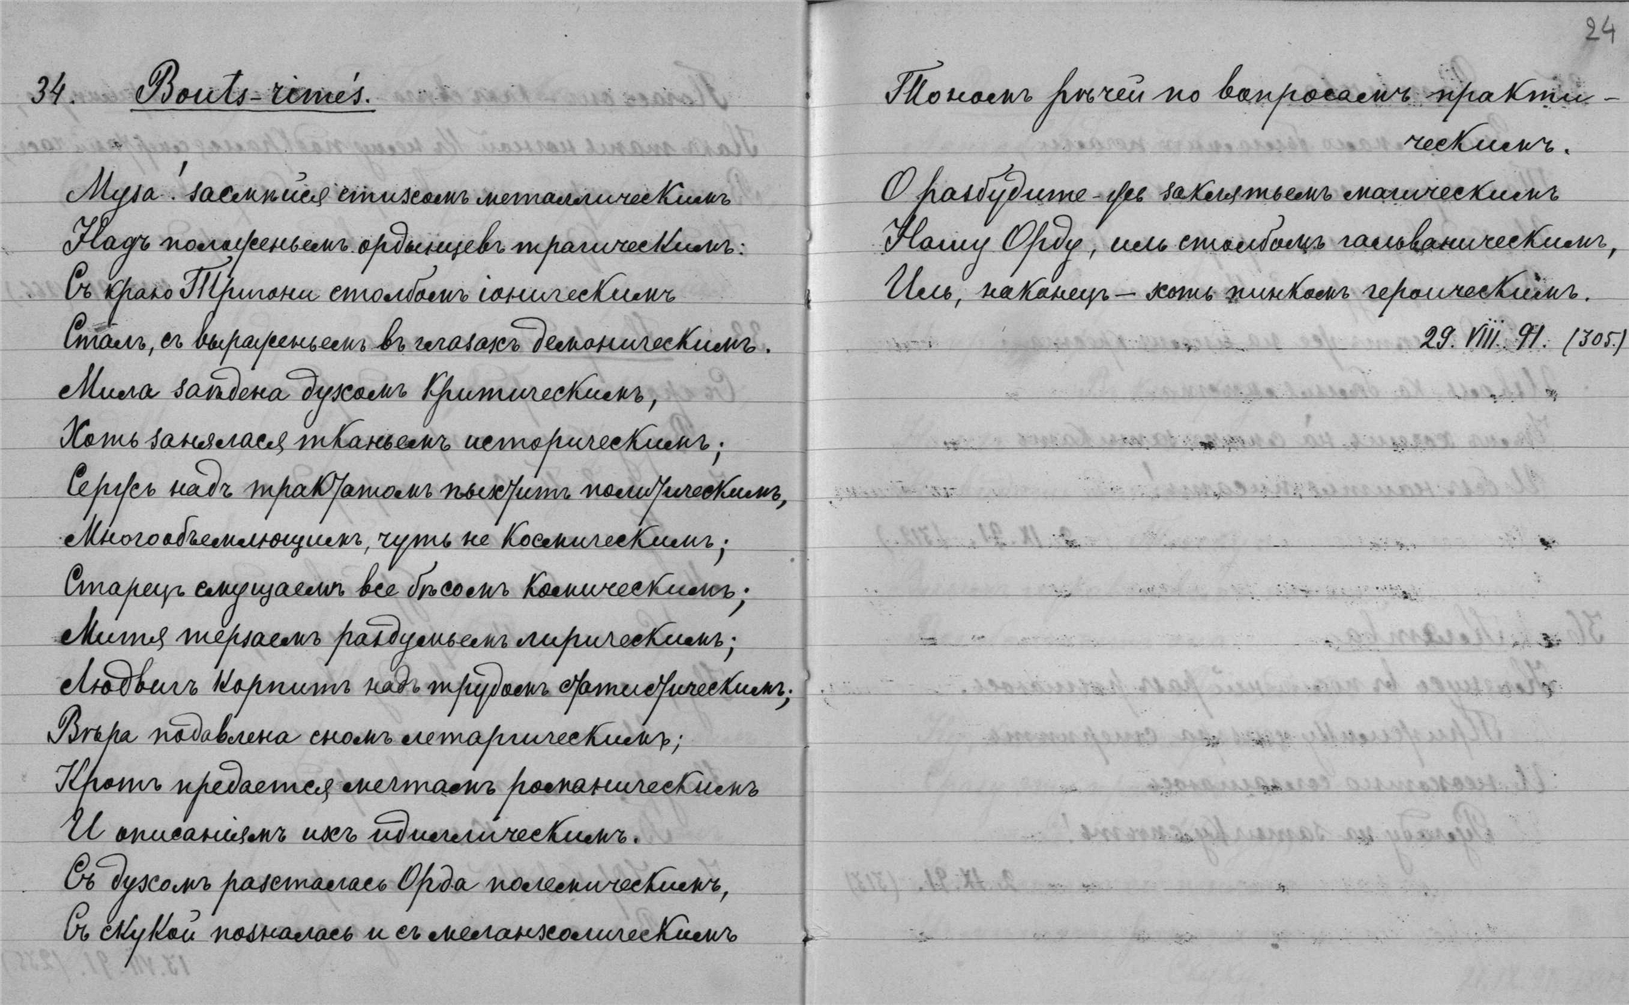 34. Bouts-rimés.
Муза! засмѣйся стихомъ металлическимъ
Надъ положеньемъ ордынцевъ трагическимъ:
Съ краю Тригони столбомъ іоническимъ
Сталъ, съ выраженьемъ въ глазахъ демоническимъ.
Мила заѣдена духомъ критическимъ,
Хоть занялася тканьемъ историческимъ;
Сержъ надъ трактатомъ пыхтитъ политическимъ,
Многообъемлющимъ, чуть не космическимъ;
Старецъ смущаемъ все бѣсомъ комическимъ;
Митя терзаемъ раздумьемъ лирическимъ;
Людвигъ корпитъ надъ трудомъ статистическимъ;
Вѣра подавлена сномъ летаргическимъ;
Кротъ предается мечтамъ романическимъ
И описаніямъ ихъ идиллическимъ.
Съ духомъ разсталась Орда полемическимъ,
Съ скукой позналась и съ меланхолическимъ
24
Тономъ рѣчей по вопросамъ практи-
ческимъ.
О разбудите-же заклятьемъ магическимъ
Нашу Орду, иль столбомъ гальваническимъ,
Иль, наконецъ — хоть пинкомъ героическимъ.
29. VIII. 91. (305.)